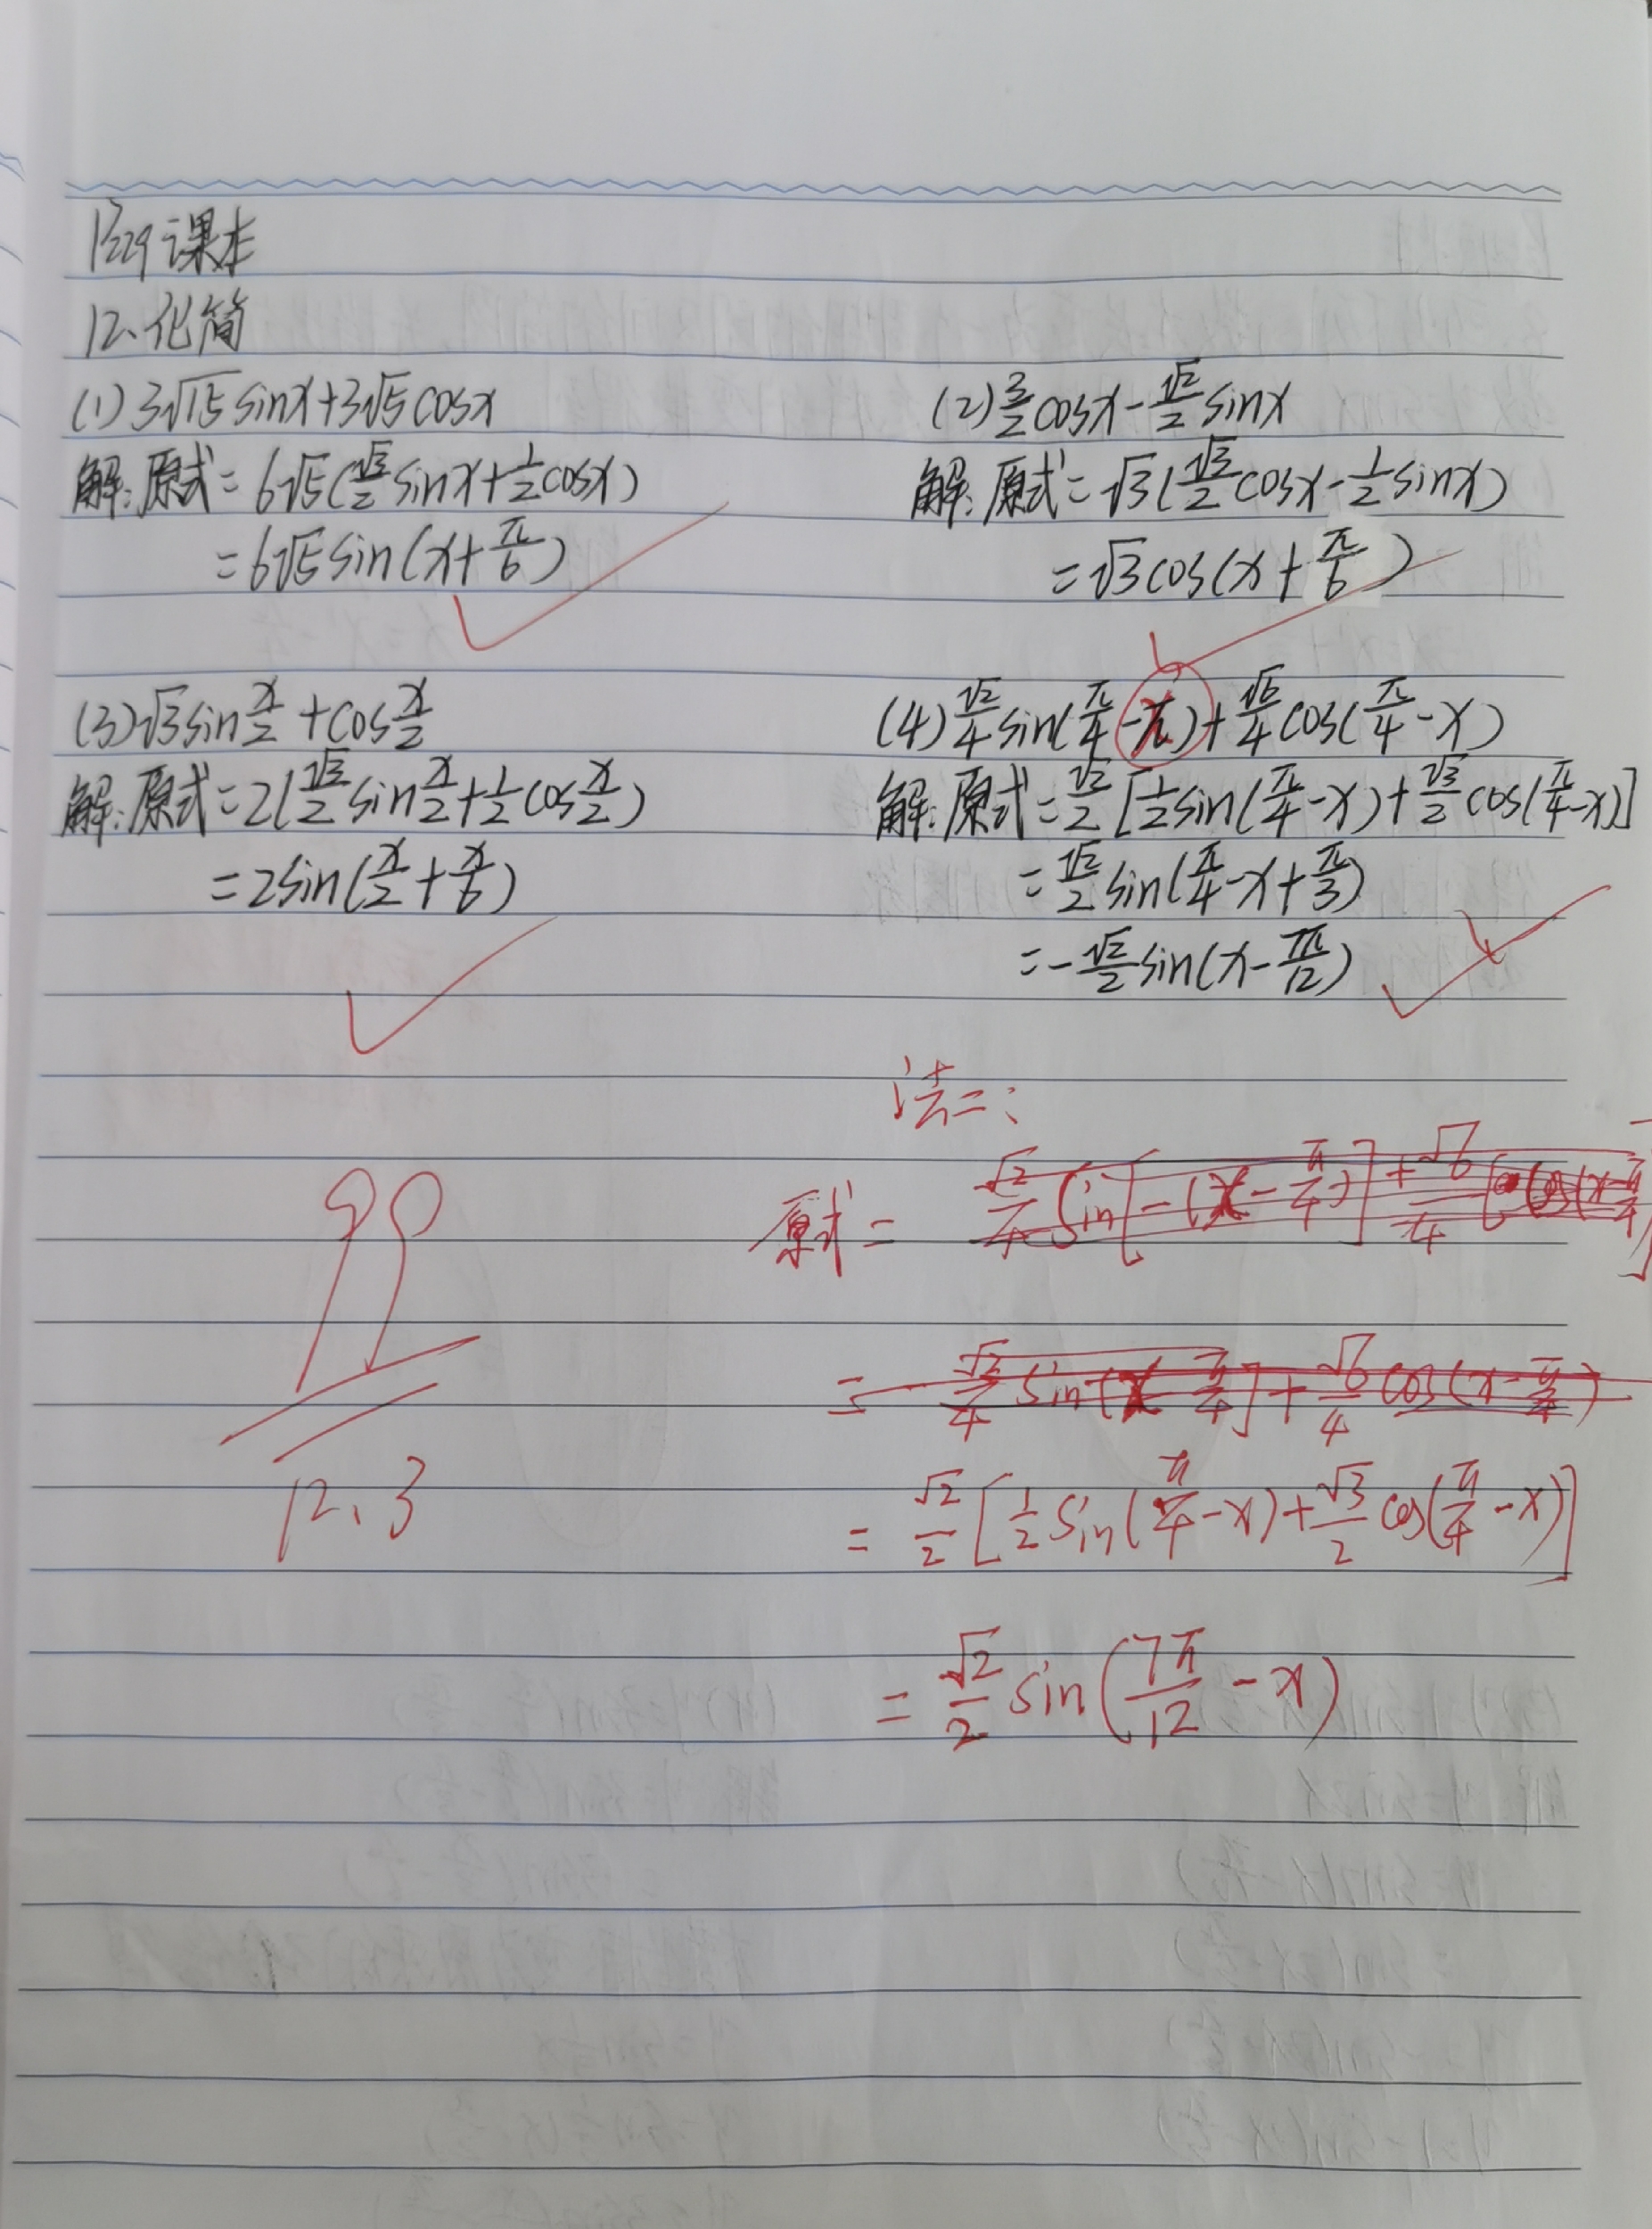 P229课本
12、化简
(1) 3√15 sinx+3√5 cosx
解:原式=6√5(√3/2 sinx+1/2 cosx)
=6√5 sin(x+π/6)
(2) 3/2 cosx-√2/2 sinx
解:原式=√3(√3/2 cosx-1/2 sinx)
=√3 cos(x+π/6)
(3) √3 sin x/2 + cos x/2
解:原式=2(√3/2 sin x/2+1/2 cos x/2)
=2sin(x/2+π/6)
(4) √2/4 sin(π/4-x)+√6/4 cos(π/4-x)
解:原式=√2/2[1/2 sin(π/4-x)+√3/2 cos(π/4-x)]
=√2/2 sin(π/4-x+π/3)
=-√2/2 sin(x-7π/12)
法二:
原式= √2/4 sin[-(x-π/4)]+√6/4[cos(x-π/4)]
=-√2/4 sin(x-π/4]+√6/4 cos(x-π/4)
=√2/2[1/2 sin(π/4-x)+√3/2 cos(π/4-x)]
=√2/2 sin(7π/12-x)
99
12、3